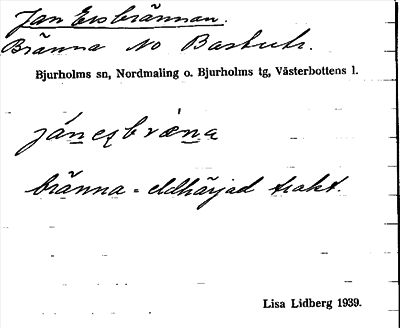 Jan Ersbrännan.
Bränna NO Bastutr.
Bjurholms sn, Nordmaling o. Bjurholms tg, Västerbottens l.
bränna = eldhärjad trakt.
Lisa Lidberg 1939.